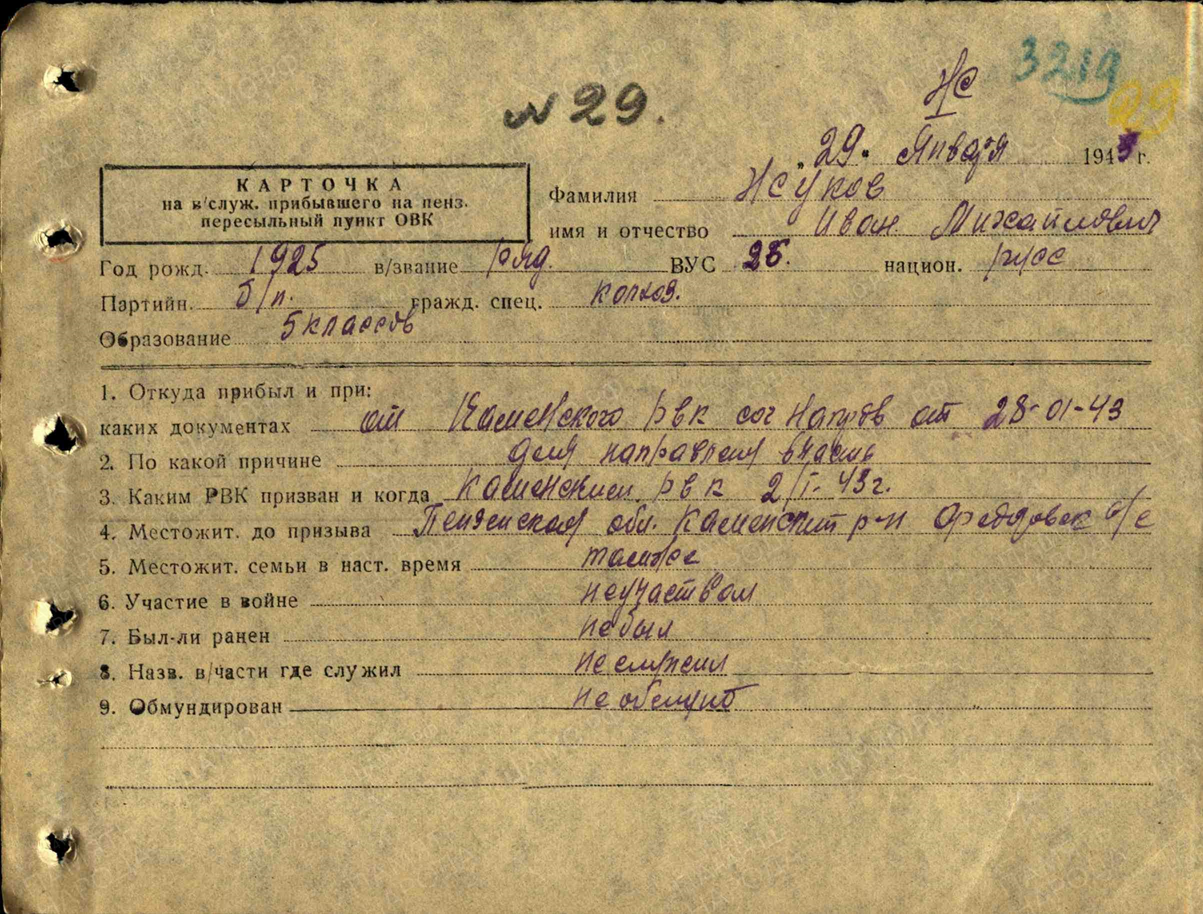 3219
Ж
29
№ 29.
„29“ Января 1943 г.
КАРТОЧКА
на в/служ. прибывшего на пенз.
пересыльный пункт ОВК
Фамилия Жуков
имя и отчество Иван Михайлович
Год рожд. 1925 в/звание ряд. ВУС 26. национ. русс
Партийн. б/п. гражд. спец. колхоз.
Образование 5 классов
1. Откуда прибыл и при:
каких документах от Каменского рвк сог напрв от 28-01-43
2. По какой причине для направлен вчасть
3. Каким РВК призван и когда Каменским рвк 2/I-43г.
4. Местожит. до призыва Пензенская обл. Каменский р-н с/с
5. Местожит. семьи в наст. время тамже
6. Участие в войне неучаством
7. Был-ли ранен небыл
8. Назв. в/части где служил неслужил
9. Обмундирован не обмунд